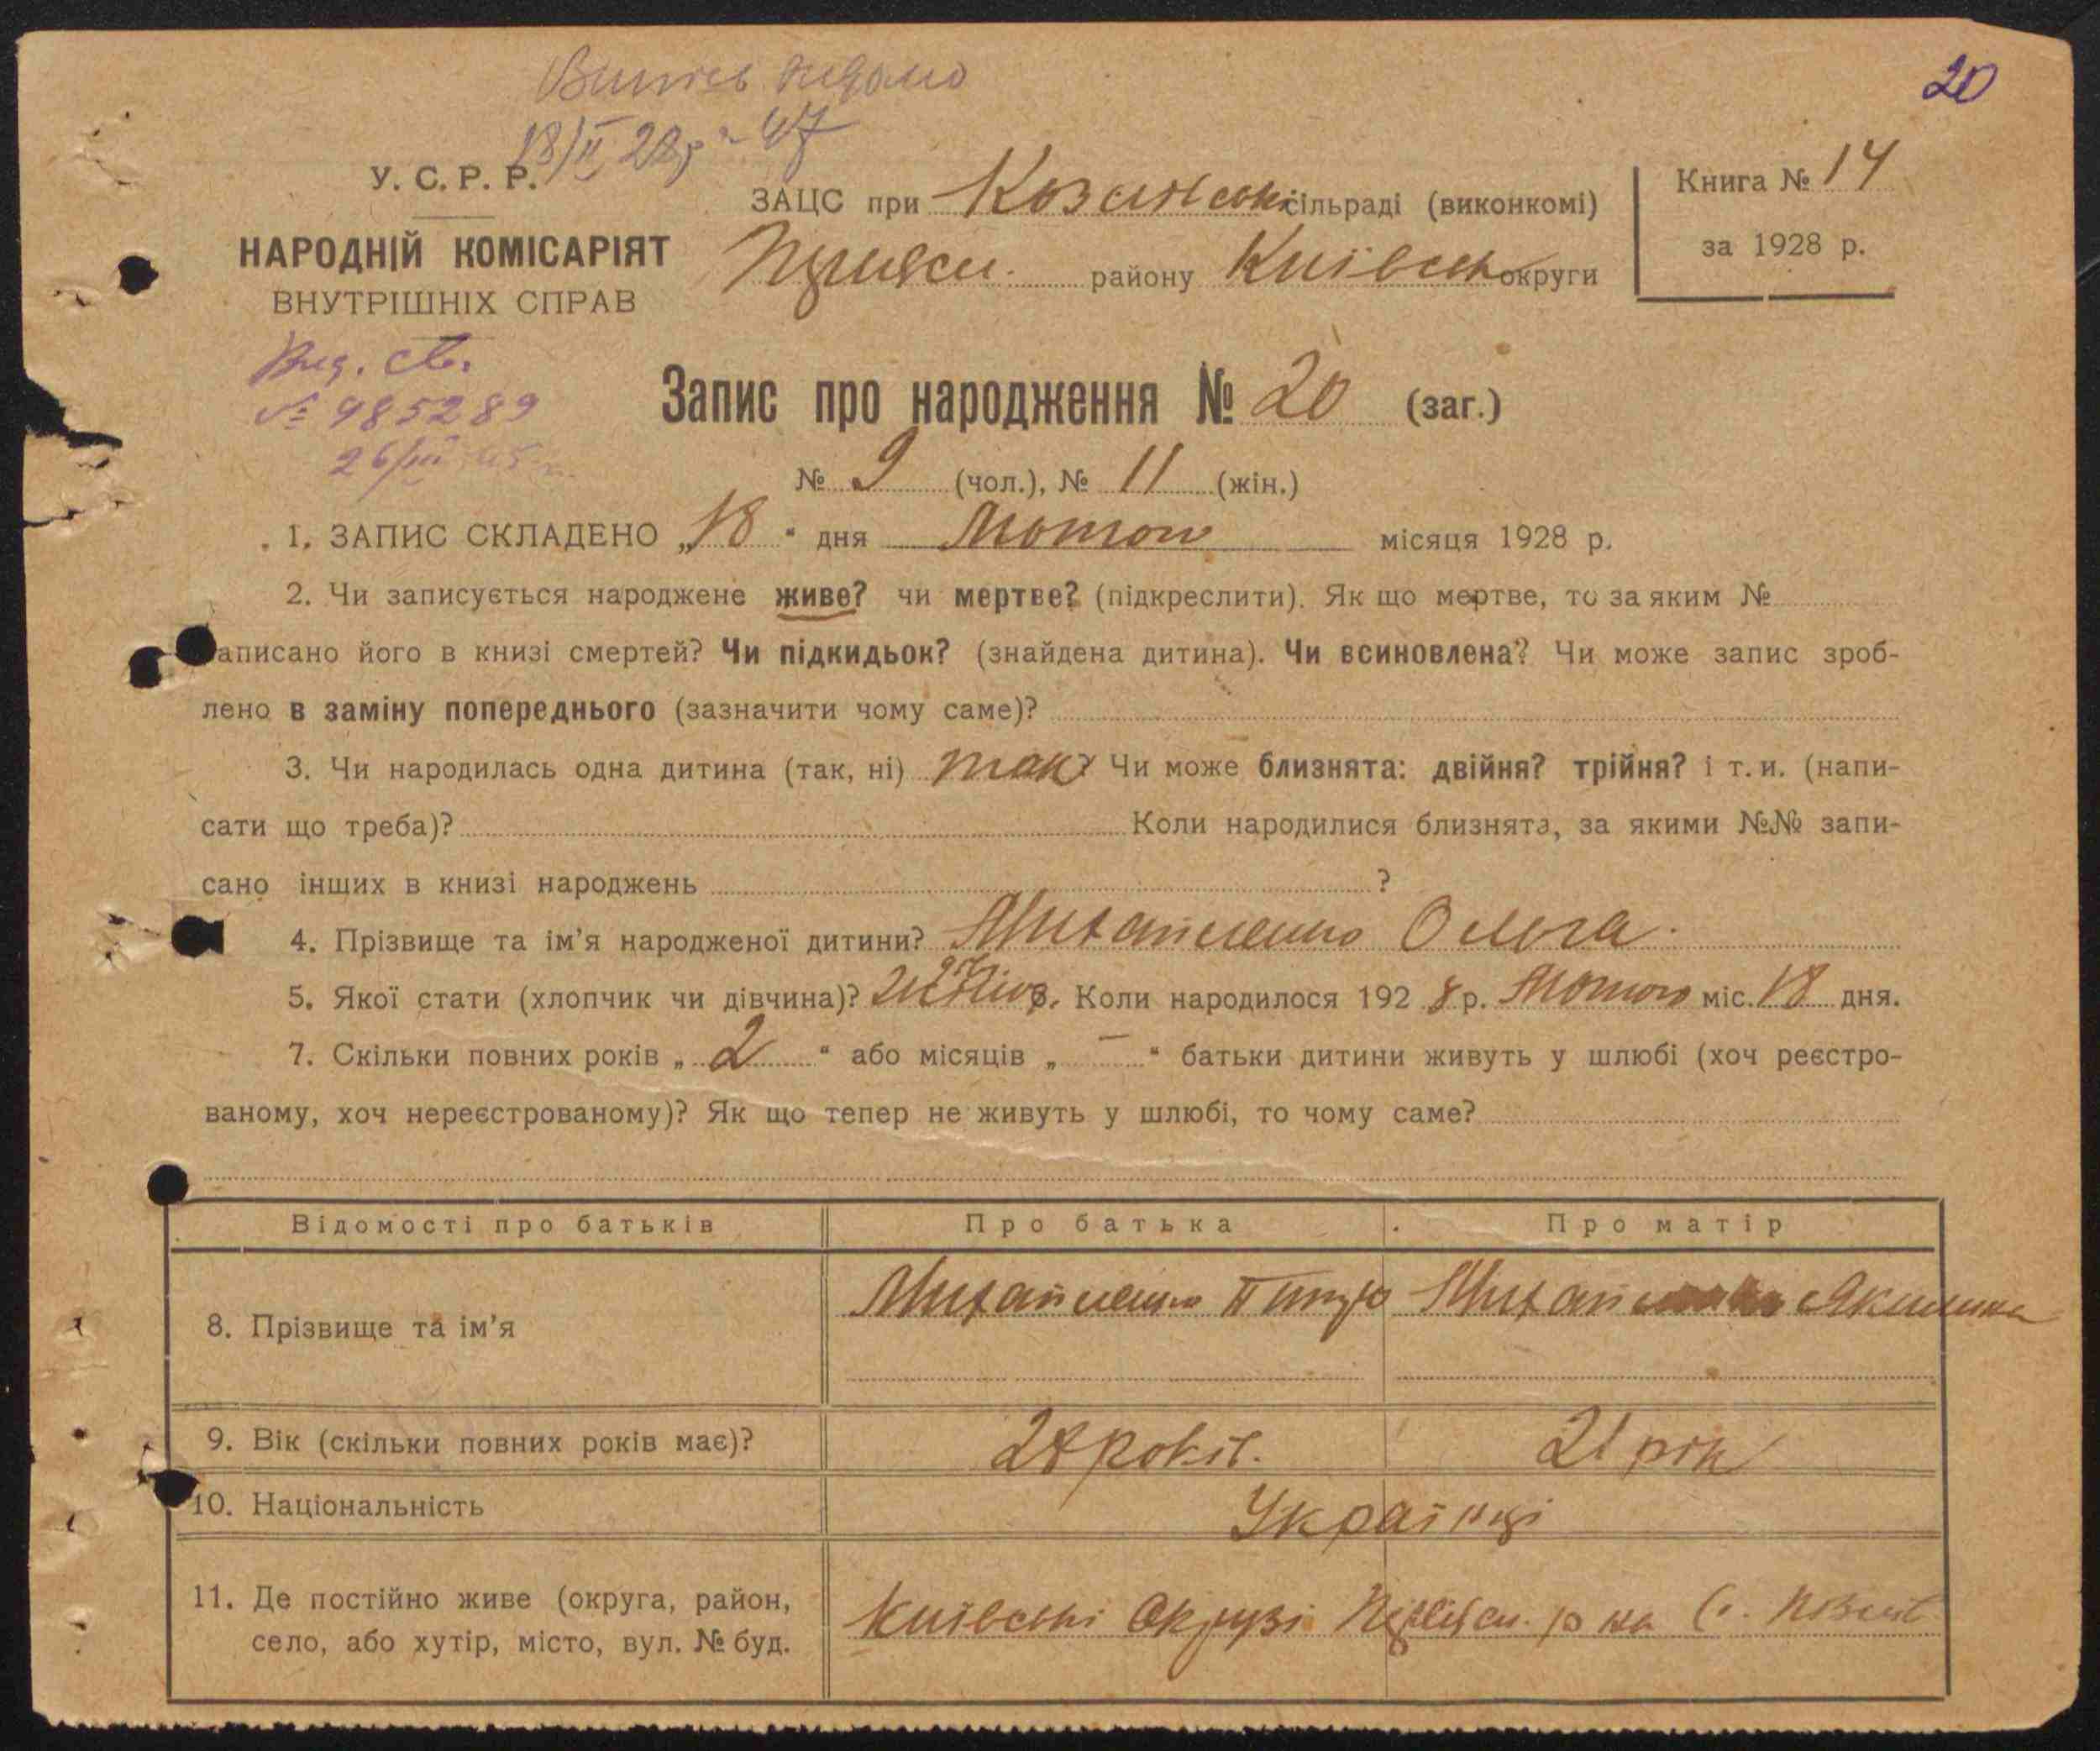 20
Витяг видано
18/II 28 р № 47
У. С. Р. Р.
НАРОДНІЙ КОМІСАРІЯТ
ВНУТРІШНІХ СПРАВ
ЗАЦС при сільраді (виконкомі)
району Київськ округи
Книга № 14
за 1928 р.
Вид. св.
№ 985289
26/III
Запис про народження № 20 (заг.)
№ 9 (чол.), № 11 (жін.)
1. ЗАПИС СКЛАДЕНО „18“ дня Лютого місяця 1928 р.
2. Чи записується народжене живе? чи мертве? (підкреслити). Як що мертве, то за яким №
аписано його в книзі смертей? Чи підкидьок? (знайдена дитина). Чи всиновлена? Чи може запис зроб-
лено в заміну попереднього (зазначити чому саме)?
3. Чи народилась одна дитина (так, ні) так? Чи може близнята: двійня? трійня? і т. и. (напи-
сати що треба)? Коли народилися близнята, за якими №№ запи-
сано інших в книзі народжень ?
4. Прізвище та ім'я народженої дитини? Михайленко Ольга.
5. Якої стати (хлопчик чи дівчина)? Коли народилося 192 8 р. Лютого міс. 18 дня.
7. Скільки повних років „ 2 “ або місяців „ — “ батьки дитини живуть у шлюбі (хоч реєстро-
ваному, хоч нереєстрованому)? Як що тепер не живуть у шлюбі, то чому саме?
Відомості про батьків Про батька Про матір
8. Прізвище та ім'я Михайленко Михайленко Якилина
9. Вік (скільки повних років має)? 28 років. 21 рік
10. Національність Українці
11. Де постійно живе (округа, район,
село, або хутір, місто, вул. № буд.
Київські Окрузі р на С.